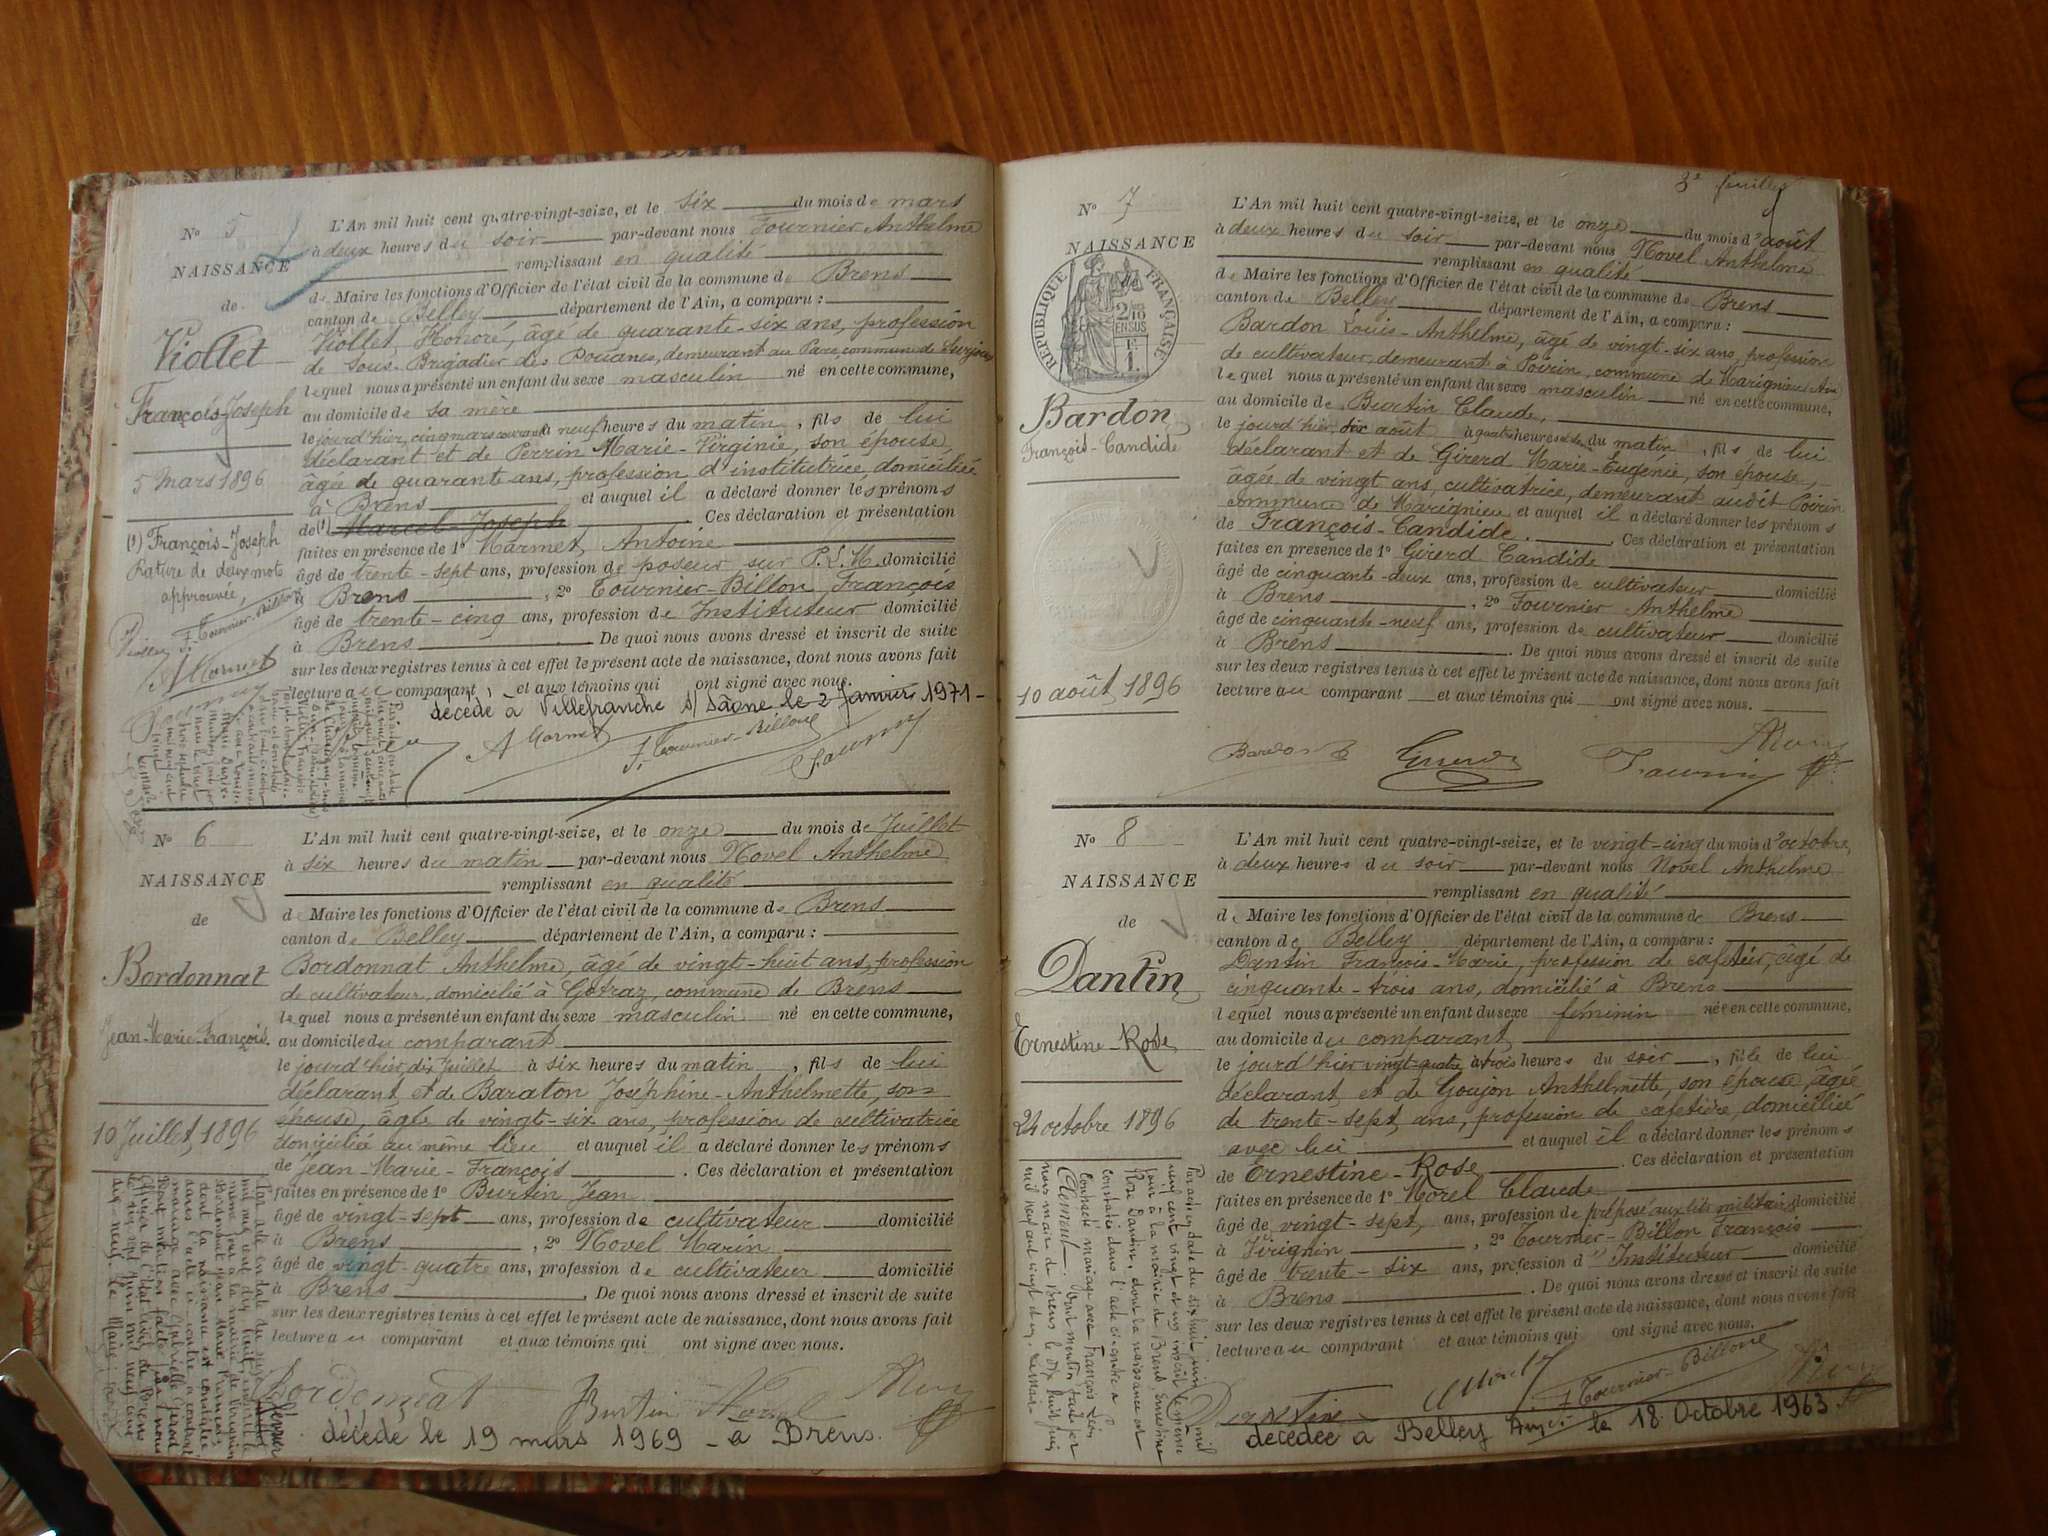 N° 5
NAISSANCE
de
Viollet
François-Joseph
5 Mars 1896
(1) François-Joseph
Rature de deux mots
approuvée,
Viollet F. Tournier-Billon
A Marmet
L'An mil huit cent quatre-vingt-seize, et le six du mois de mars
à deux heures du soir par-devant nous Fournier Anthelme
remplissant en qualité
de Maire les fonctions d'Officier de l'état civil de la commune de Brens
canton de Belley département de l'Ain, a comparu :
Viollet, Honoré, âgé de quarante-six ans, profession
de Sous-Brigadier des Douanes, demeurant au Parc, commune de Surjoux
lequel nous a présenté un enfant du sexe masculin né en cette commune,
au domicile de sa mère
le jourd'hier, cinq mars courant à neuf heures du matin, fils de lui
déclarant et de Perrin Marie-Virginie, son épouse
âgée de quarante ans, profession d'institutrice, domiciliée
à Brens et auquel il a déclaré donner les prénoms
de (1) Marcel-Joseph. Ces déclaration et présentation
faites en présence de 1° Marmet, Antoine
âgé de trente-sept ans, profession de poseur sur P.L.M. domicilié
à Brens, 2° Tournier-Billon, François
âgé de trente-cinq ans, profession de Instituteur domicilié
à Brens. De quoi nous avons dressé et inscrit de suite
sur les deux registres tenus à cet effet le présent acte de naissance, dont nous avons fait
lecture au comparant, et aux témoins qui ont signé avec nous.
décédé à Villefranche s/ Saône le 2 Janvier 1971 -
A Marmet F. Tournier-Billon Fournier
N° 6
NAISSANCE
de
Bordonnat
Jean-Marie-François.
10 Juillet, 1896
L'An mil huit cent quatre-vingt-seize, et le onze du mois de Juillet
à six heures du matin par-devant nous Novel Anthelme
remplissant en qualité
de Maire les fonctions d'Officier de l'état civil de la commune de Brens
canton de Belley département de l'Ain, a comparu :
Bordonnat Anthelme, âgé de vingt-huit ans, profession
de cultivateur, domicilié à Gotraz, commune de Brens
lequel nous a présenté un enfant du sexe masculin né en cette commune,
au domicile du comparant
le jourd'hier, dix Juillet à six heures du matin, fils de lui
déclarant, et de Baraton Joséphine-Anthelmette, son
épouse, âgée de vingt-six ans, profession de cultivatrice
domiciliée au même lieu et auquel il a déclaré donner les prénoms
de Jean-Marie-François. Ces déclaration et présentation
faites en présence de 1° Burtin Jean
âgé de vingt-sept ans, profession de cultivateur domicilié
à Brens, 2° Novel Marin
âgé de vingt-quatre ans, profession de cultivateur domicilié
à Brens. De quoi nous avons dressé et inscrit de suite
sur les deux registres tenus à cet effet le présent acte de naissance, dont nous avons fait
lecture au comparant et aux témoins qui ont signé avec nous.
Bordonnat Burtin Novel
décédé le 19 mars 1969 - à Brens.
3e feuillet
N° 7
NAISSANCE
RÉPUBLIQUE FRANÇAISE
2/10
EN SUS
1 F.
Bardon
François-Candide
10 août, 1896
L'An mil huit cent quatre-vingt-seize, et le onze du mois d'août
à deux heures du soir par-devant nous Novel Anthelme
remplissant en qualité
de Maire les fonctions d'Officier de l'état civil de la commune de Brens
canton de Belley département de l'Ain, a comparu :
Bardon Louis-Anthelme, âgé de vingt-six ans, profession
de cultivateur, demeurant à Poirin, commune de Marignieu Ain
lequel nous a présenté un enfant du sexe masculin né en cette commune,
au domicile de Burtin Claude,
le jourd'hier, dix août à quatre heures du matin, fils de lui
déclarant et de Girerd Marie-Eugénie, son épouse,
âgée de vingt ans, cultivatrice, demeurant audit Poirin
commune de Marignieu et auquel il a déclaré donner les prénoms
de François-Candide. Ces déclaration et présentation
faites en présence de 1° Girerd Candide
âgé de cinquante-deux ans, profession de cultivateur domicilié
à Brens, 2° Fournier Anthelme
âgé de cinquante-neuf ans, profession de cultivateur domicilié
à Brens. De quoi nous avons dressé et inscrit de suite
sur les deux registres tenus à cet effet le présent acte de naissance, dont nous avons fait
lecture au comparant et aux témoins qui ont signé avec nous.
Bardon Girerd Fournier
N° 8
NAISSANCE
de
Dantin
Ernestine-Rose
24 octobre 1896
L'An mil huit cent quatre-vingt-seize, et le vingt-cinq du mois d'octobre,
à deux heures du soir par-devant nous Novel Anthelme
remplissant en qualité
de Maire les fonctions d'Officier de l'état civil de la commune de Brens
canton de Belley département de l'Ain, a comparu :
Dantin François-Marie, profession de cafetier, âgé de
cinquante-trois ans, domicilié à Brens
lequel nous a présenté un enfant du sexe féminin née en cette commune,
au domicile du comparant
le jourd'hier vingt-quatre à trois heures du soir, fille de lui
déclarant et de Goujon Anthelmette, son épouse, âgée
de trente-sept ans, profession de cafetière, domiciliée
avec lui et auquel il a déclaré donner les prénoms
de Ernestine-Rose. Ces déclaration et présentation
faites en présence de 1° Morel Claude
âgé de vingt-sept ans, profession de préposé aux lits militaires domicilié
à Virignin, 2° Tournier-Billon François
âgé de trente-six ans, profession d'Instituteur domicilié
à Brens. De quoi nous avons dressé et inscrit de suite
sur les deux registres tenus à cet effet le présent acte de naissance, dont nous avons fait
lecture au comparant et aux témoins qui ont signé avec nous.
Dantin F Tournier-Billon
décédée à Belley le 18 Octobre 1963